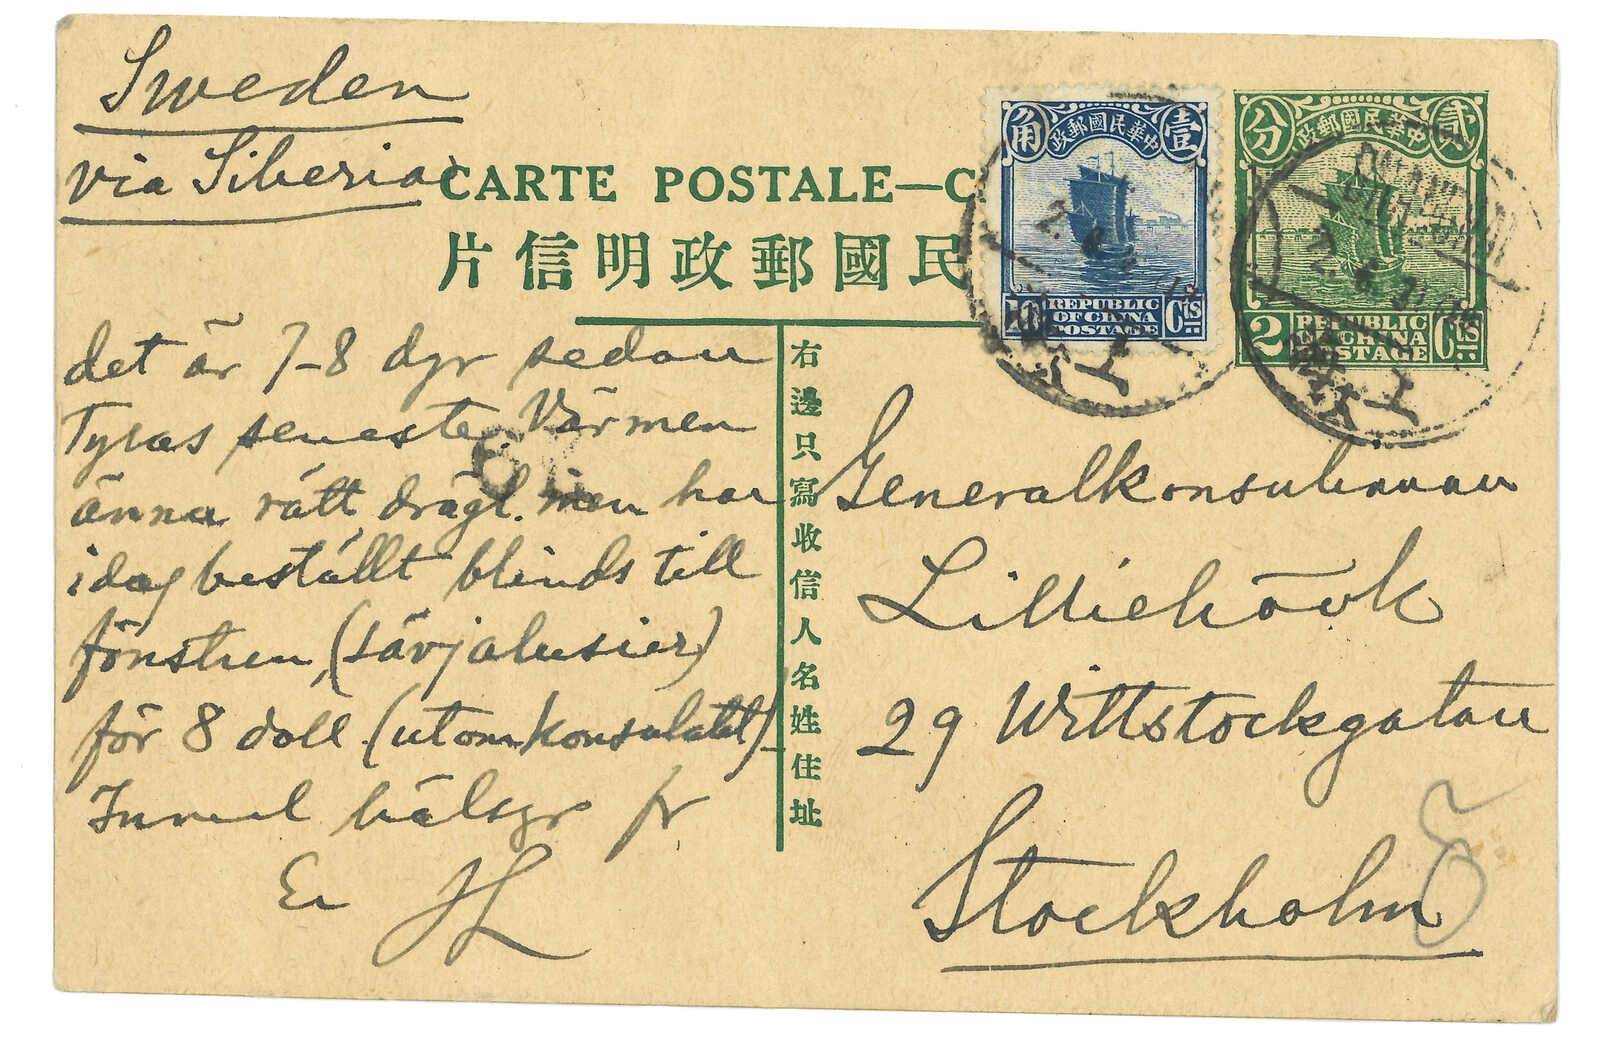 Sweden
via Siberia
CARTE POSTALE—C
片信明政郵國民
角 政郵國民華中 壹
10 REPUBLIC OF CHINA POSTAGE Cts
分 政郵國民華中 貳
2 REPUBLIC OF CHINA POSTAGE Cts
det är 7–8 dgr sedan
Tyras seneste. Värmen
ännu rätt drägl. men har
idag beställt blinds till
fönstren, (sävjalusier)
för 8 doll. (utom konsulatet)–
Innerl hälsgr fr
Er HL
右邊只寫收信人名姓住址
Generalkonsulinnan
Lilliehöök
29 Wittstocksgatan
Stockholm
Ö